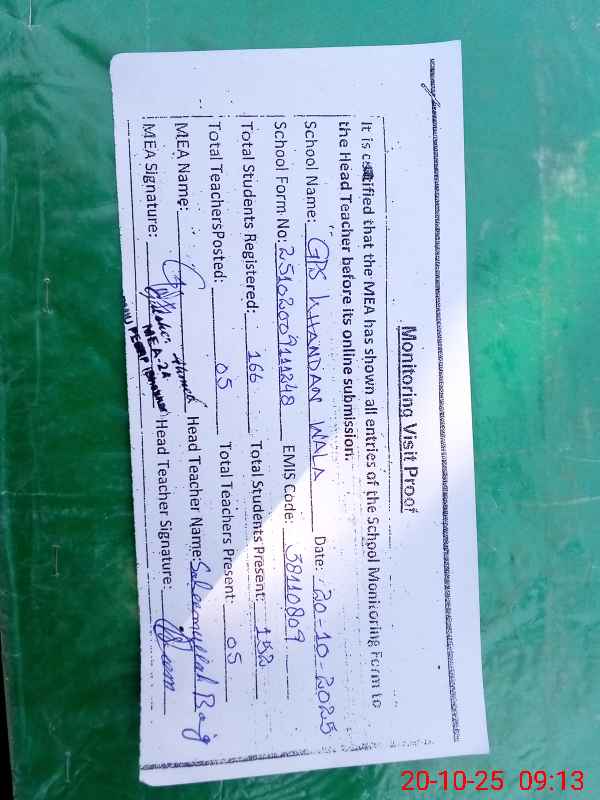 Monitoring Visit Proof
It is certified that the MEA has shown all entries of the School Monitoring Form to
the Head Teacher before its online submission.
School Name: GPS KHANDAN WALA Date: 20-10-2025
School Form No: 2510200911248 EMIS Code: 38110809
Total Students Registered: 166 Total Students Present: 152
Total TeachersPosted: 05 Total Teachers Present: 05
MEA Name: Hamid Head Teacher Name: Saleemullah Baig
MEA Signature: MEA-24 Head Teacher Signature:
20-10-25 09:13